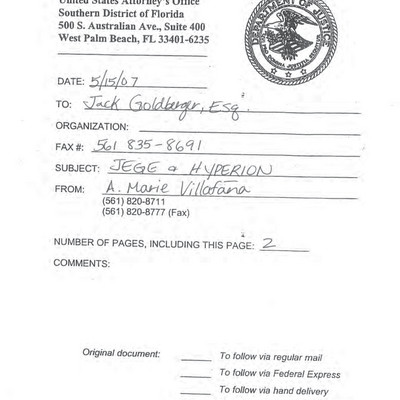 United States Attorney's Office
Southern District of Florida
500 S. Australian Ave., Suite 400
West Palm Beach, FL 33401-6235
DEPARTMENT OF JUSTICE
DATE: 5/15/07
TO: Jack Goldberger, Esq.
ORGANIZATION:
FAX #: 561 835-8691
SUBJECT: JEGE & HYPERION
FROM: A. Marie Villafaña
(561) 820-8711
(561) 820-8777 (Fax)
NUMBER OF PAGES, INCLUDING THIS PAGE: 2
COMMENTS:
Original document: To follow via regular mail
To follow via Federal Express
To follow via hand delivery